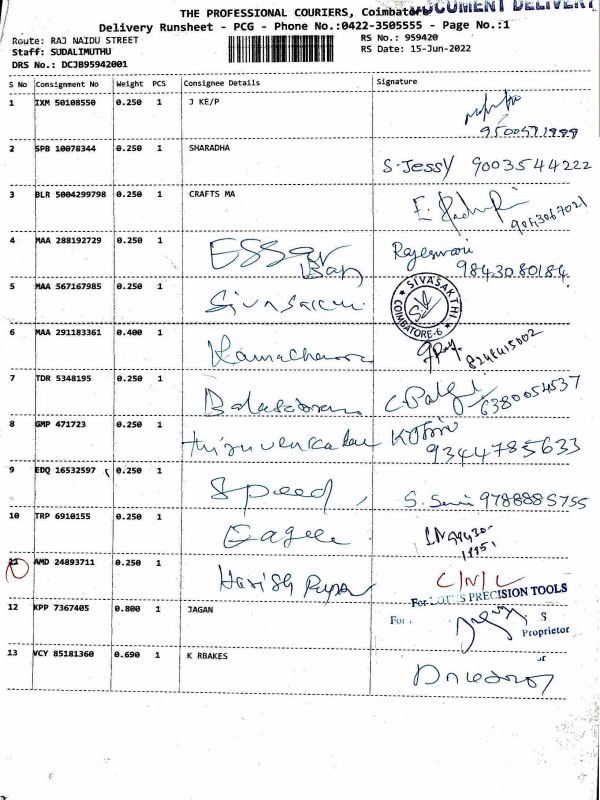 THE PROFESSIONAL COURIERS, Coimbatore
DOCUMENT DELIVERY
Delivery Runsheet - PCG - Phone No.:0422-3505555 - Page No.:1
Route: RAJ NAIDU STREET
RS No.: 959420
Staff: SUDALIMUTHU
RS Date: 15-Jun-2022
DRS No.: DCJB95942001
S No Consignment No Weight PCS Consignee Details Signature
1 IXM 50108550 0.250 1 J KE/P
9500571999
2 SPB 10078344 0.250 1 SHARADHA
S-Jessy 9003544222
3 BLR 5004299798 0.250 1 CRAFTS MA
9843067021
4 MAA 288192729 0.250 1 ESSar Rajeswari
9843080184
5 MAA 567167985 0.250 1 SIVASAKTHI
COIMBATORE-6
6 MAA 291183361 0.400 1
8248415002
7 TDR 5348195 0.250 1
6380054537
8 GMP 471723 0.250 1
9344785633
9 EDQ 16532597 0.250 1 Speed S. 9788885755
10 TRP 6910155 0.250 1
11 AMD 24893711 0.250 1 Harish
For LOTUS PRECISION TOOLS
12 KPP 7367405 0.800 1 JAGAN
For
Proprietor
13 VCY 85181360 0.690 1 K RBAKES